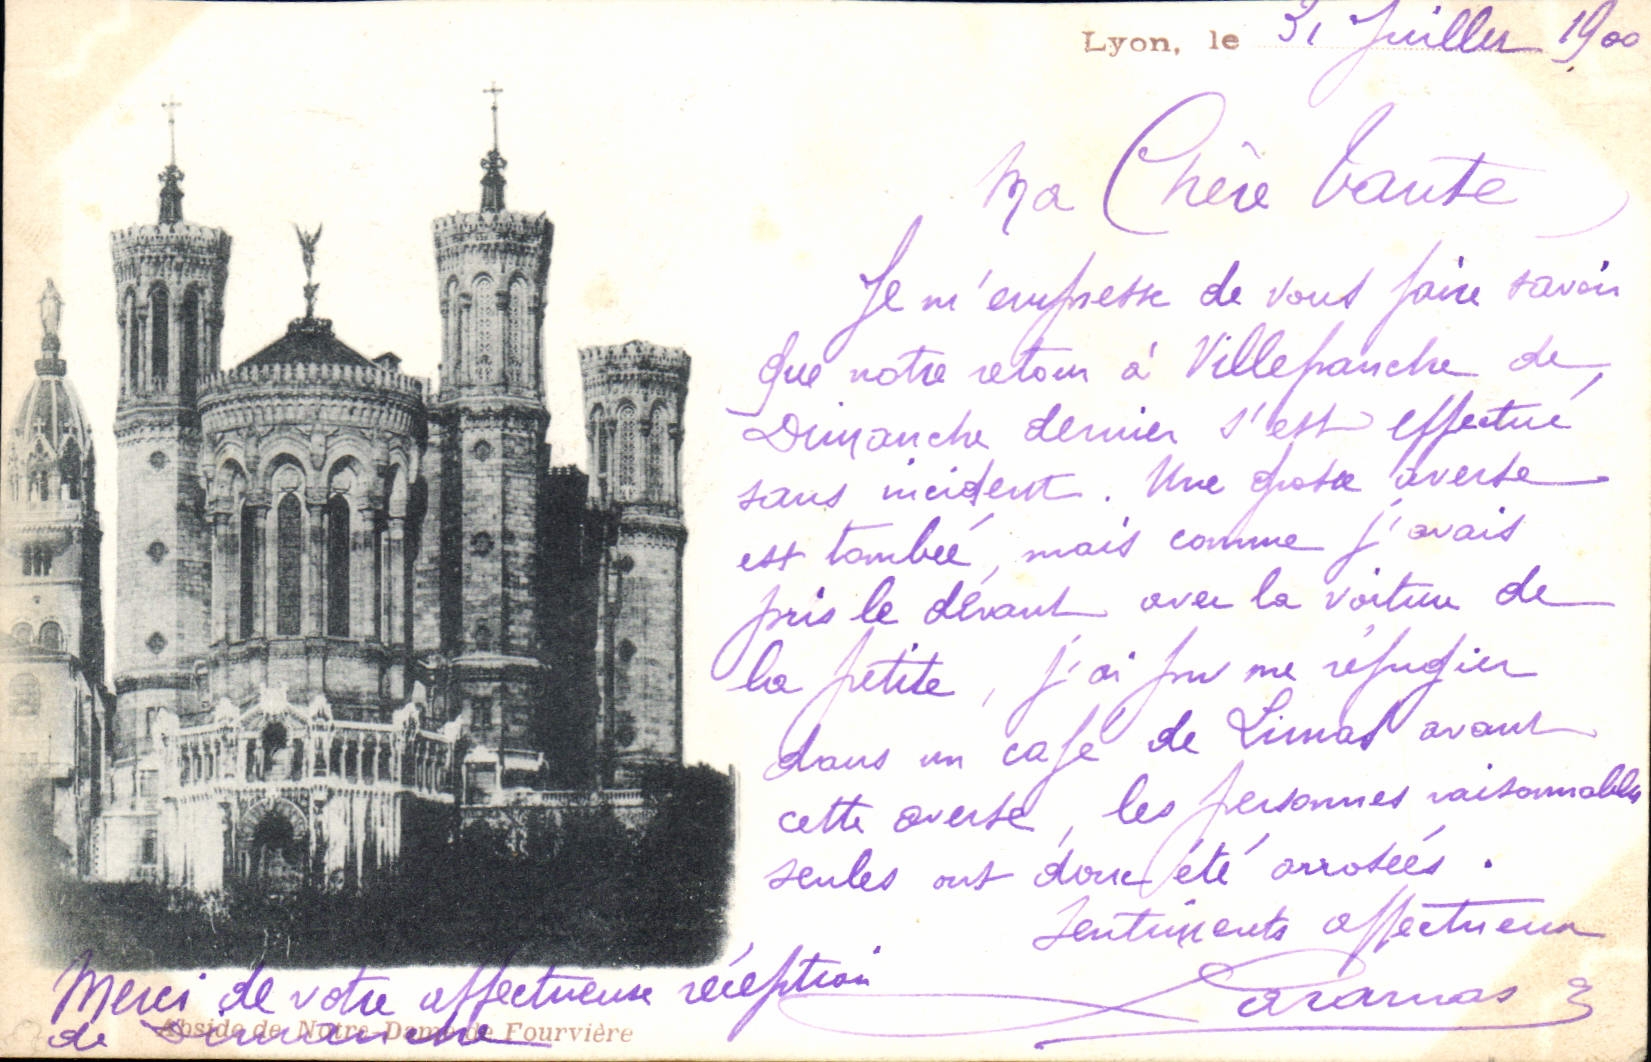 Lyon, le 31 Juillet 1900
Ma Chère Tante
Je m'empresse de vous faire savoir
que notre retour à Villefranche de
Dimanche dernier s'est effectué
sans incident. Une grosse averse
est tombée, mais comme j'avais
pris le devant avec la voiture de
la petite, j'ai pu me réfugier
dans un café de Limas avant
cette averse, les personnes raisonnables
seules ont donc été arrosées.
Sentiments affectueux
Merci de votre affectueuse réception
de Dimanche
Abside de Notre-Dame de Fourvière